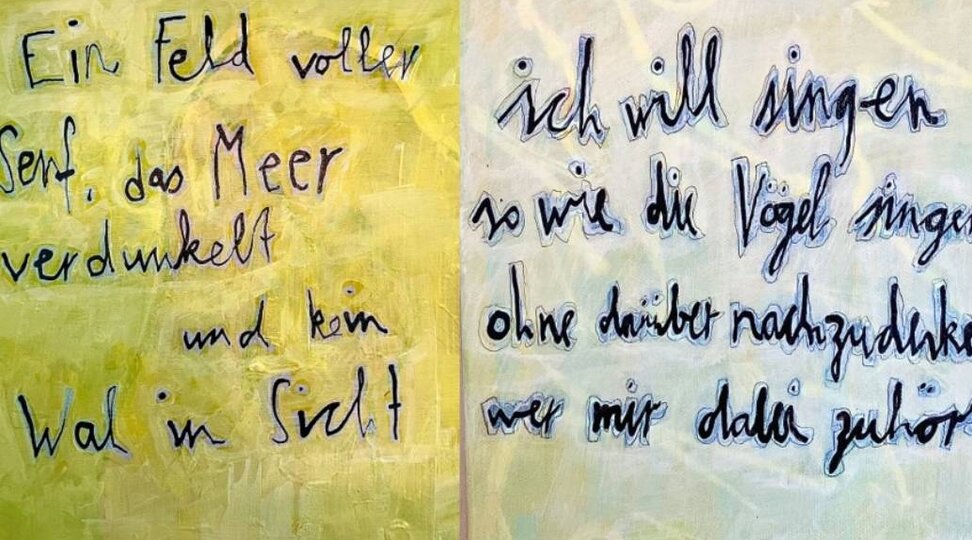 Ein Feld voller
Senf, das Meer
verdunkelt
und kein
Wal in Sicht
ich will singen
so wie die Vögel singen
ohne darüber nachzudenke
wer mir dabei zuhört